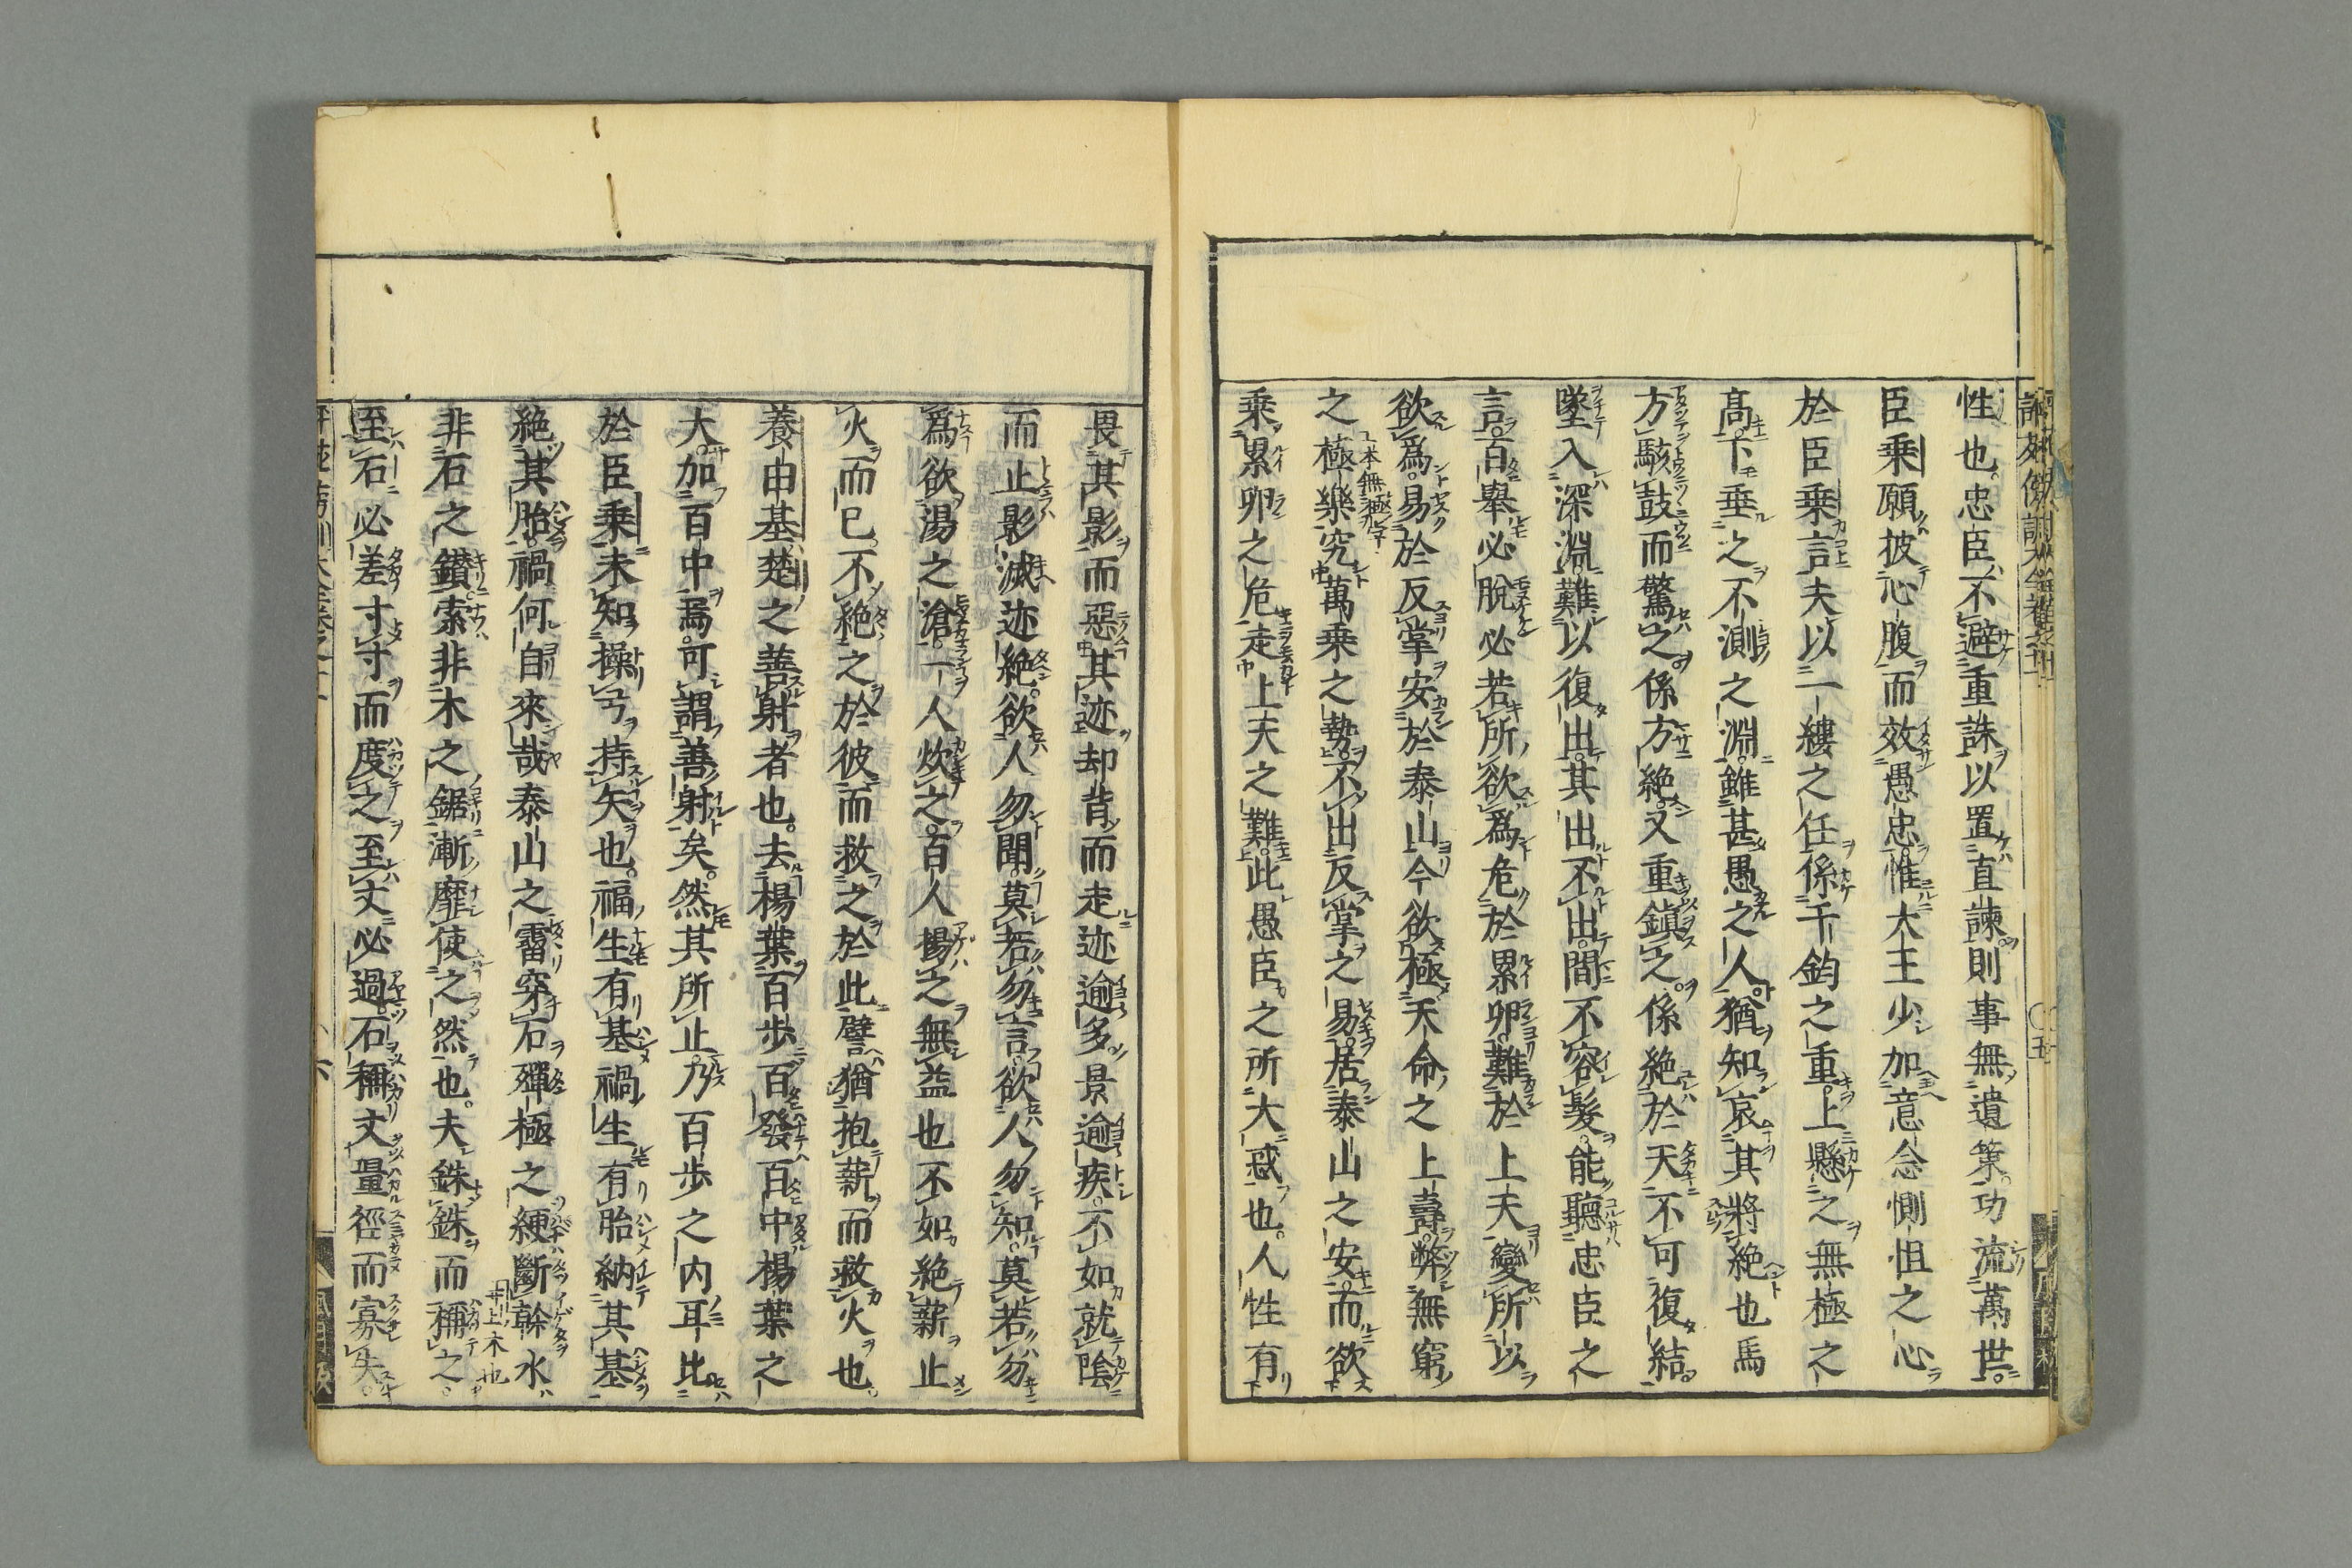 性也。忠臣不避重誅以置直諫則事無遺策。功流萬世。
臣乗願披心腹而效愚忠。惟大王少加意念惻怛之心
於臣乗言夫以一縷之任係千鈞之重。上懸之無極之
髙。下垂之不測之淵。雖甚愚之人猶知哀其將絶也馬
方駭鼓而驚之。係方絶。又重鎮之。係絶於天不可復結。
墜入深淵。難以復出。其出不出。間不容髮。能聽忠臣之
言。百舉必脱必若所欲爲危於累卵。難於上夫變所以
欲爲。易於反掌安於泰山今欲極天命之上壽。弊無窮
之極樂究萬乗之勢。不出反掌之易。居泰山之安。而欲
乗累卵之危走上夫之難。此愚臣之所大惑也。人性有
畏其影而惡其迹却背而走迹逾多景逾疾。不如就陰
而止影滅迹絶。欲人勿聞。莫若勿言。欲人勿知。莫若勿
爲欲湯之滄。一人炊之。百人揚之無益也不如絶薪止
火而已。不絶之於彼而救之於此譬猶抱薪而救火也。
養由基楚之善射者也。去楊葉百歩百發百中楊葉之
大。加百中焉。可謂善射矣。然其所止乃百歩之内耳比
於臣乗未知操弓持矢也。福生有基禍生有胎納其基
絶其胎。禍何自來哉泰山之霤穿石殫極之綆斷幹水
非石之鑚。索非木之鋸漸靡使之然也。夫銖銖而稱之。
井上木也
至石必差寸寸而度之至丈必過。石稱丈量徑而寡失。
六